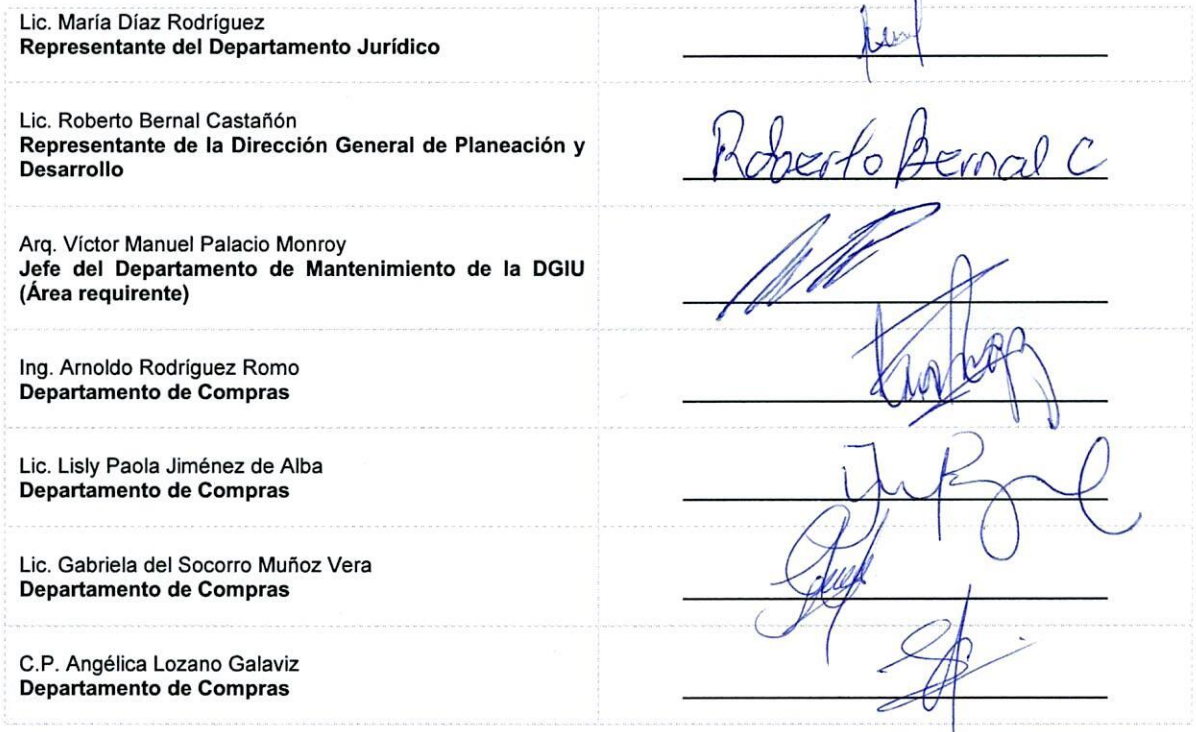 Lic. María Díaz Rodríguez
Representante del Departamento Jurídico
Lic. Roberto Bernal Castañón
Representante de la Dirección General de Planeación y
Desarrollo
Roberto Bernal C
Arq. Víctor Manuel Palacio Monroy
Jefe del Departamento de Mantenimiento de la DGIU
(Área requirente)
Ing. Arnoldo Rodríguez Romo
Departamento de Compras
Lic. Lisly Paola Jiménez de Alba
Departamento de Compras
Lic. Gabriela del Socorro Muñoz Vera
Departamento de Compras
C.P. Angélica Lozano Galaviz
Departamento de Compras